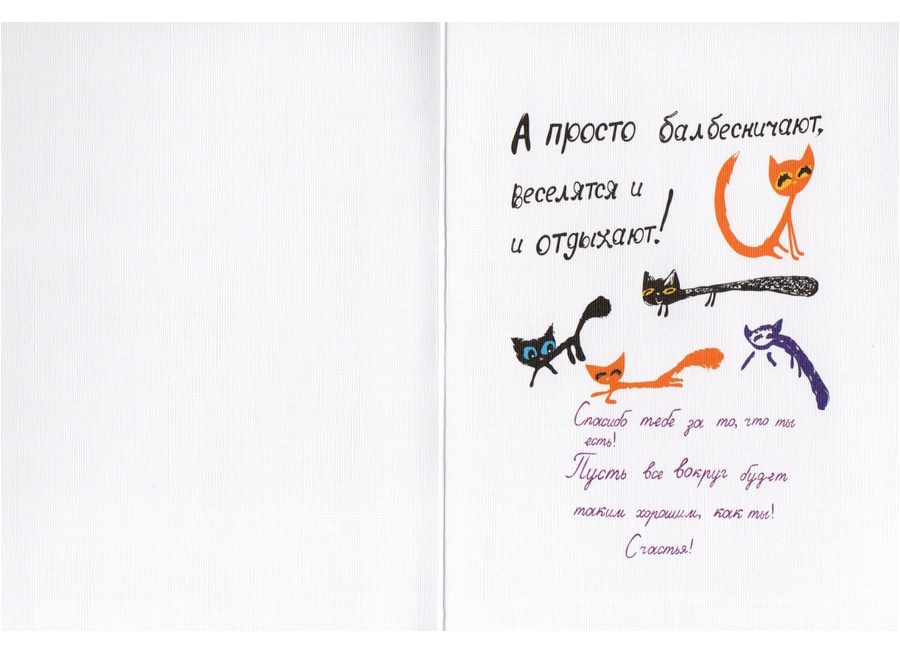 А просто балбесничают,
веселятся и
и отдыхают!
Спасибо тебе за то, что ты
есть!
Пусть все вокруг будет
таким хорошим, как ты!
Счастья!